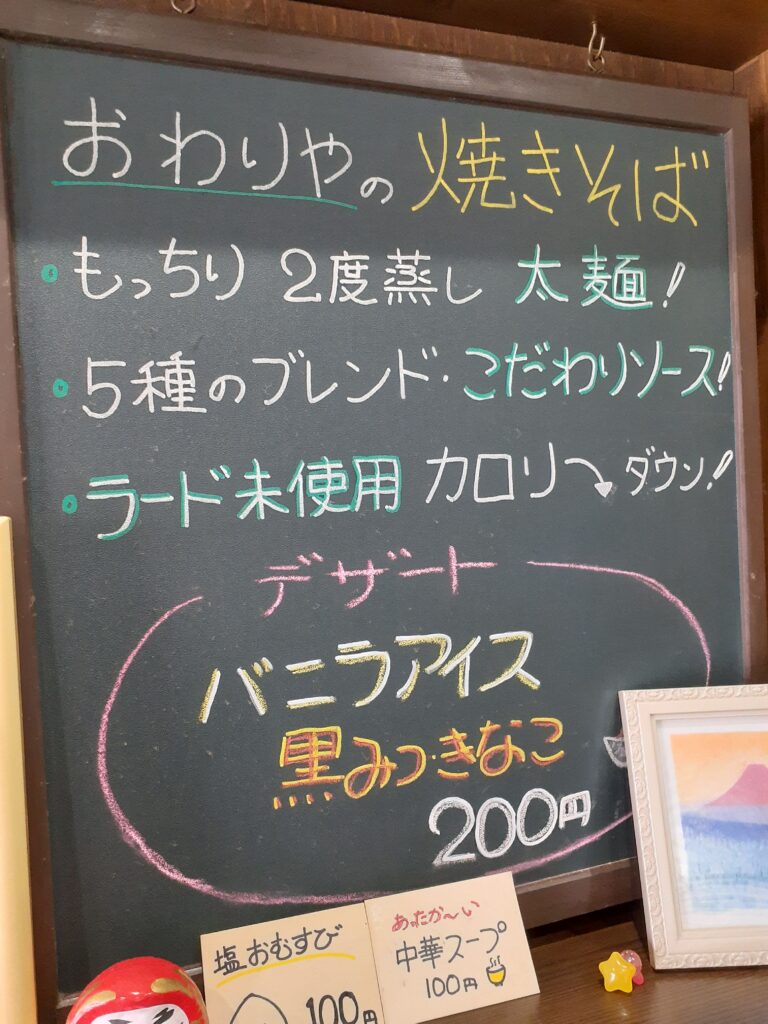 おわりやの焼きそば
・もっちり 2度蒸し 太麺!
・5種のブレンド・こだわりソース!
・ラード未使用 カロリーダウン!!
デザート
バニラアイス
黒みつ・きなこ
200円
塩おむすび
100円
あったか〜い
中華スープ
100円